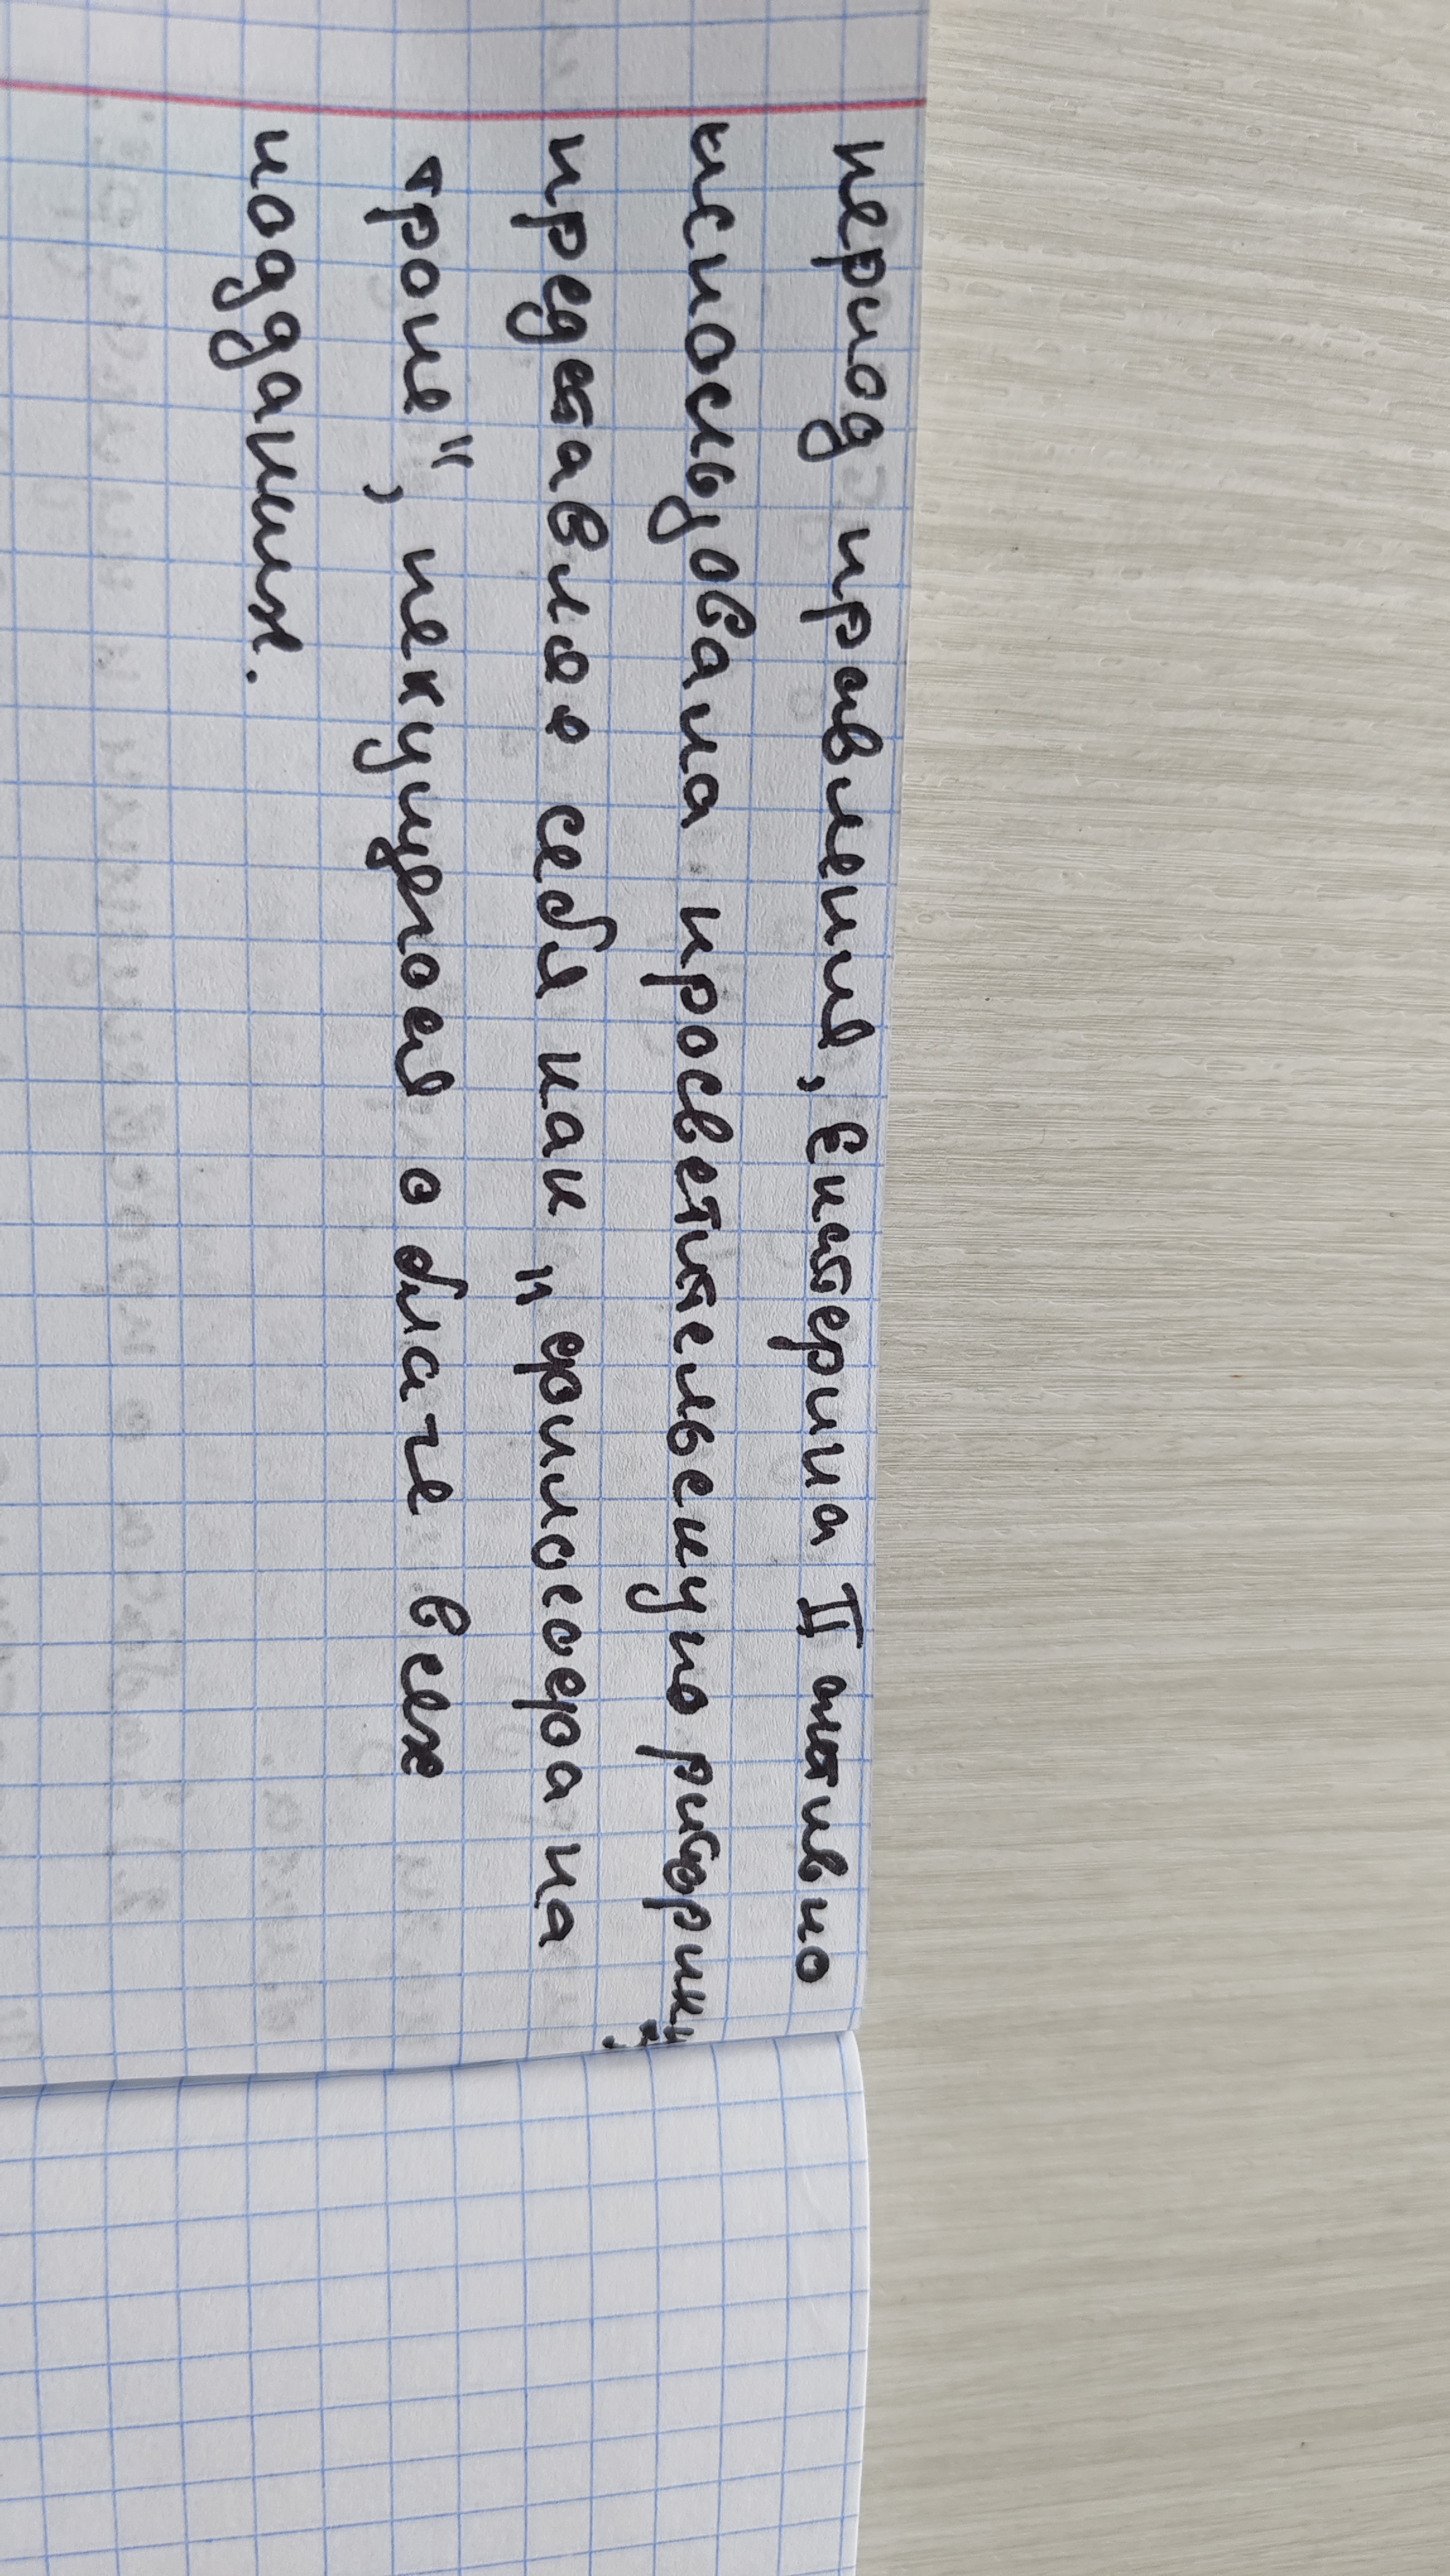 период правления, Екатерина II активно
использовала просветительскую риторику,
представляя себя как „философа на
троне", пекущуюся о благе всех
подданных.